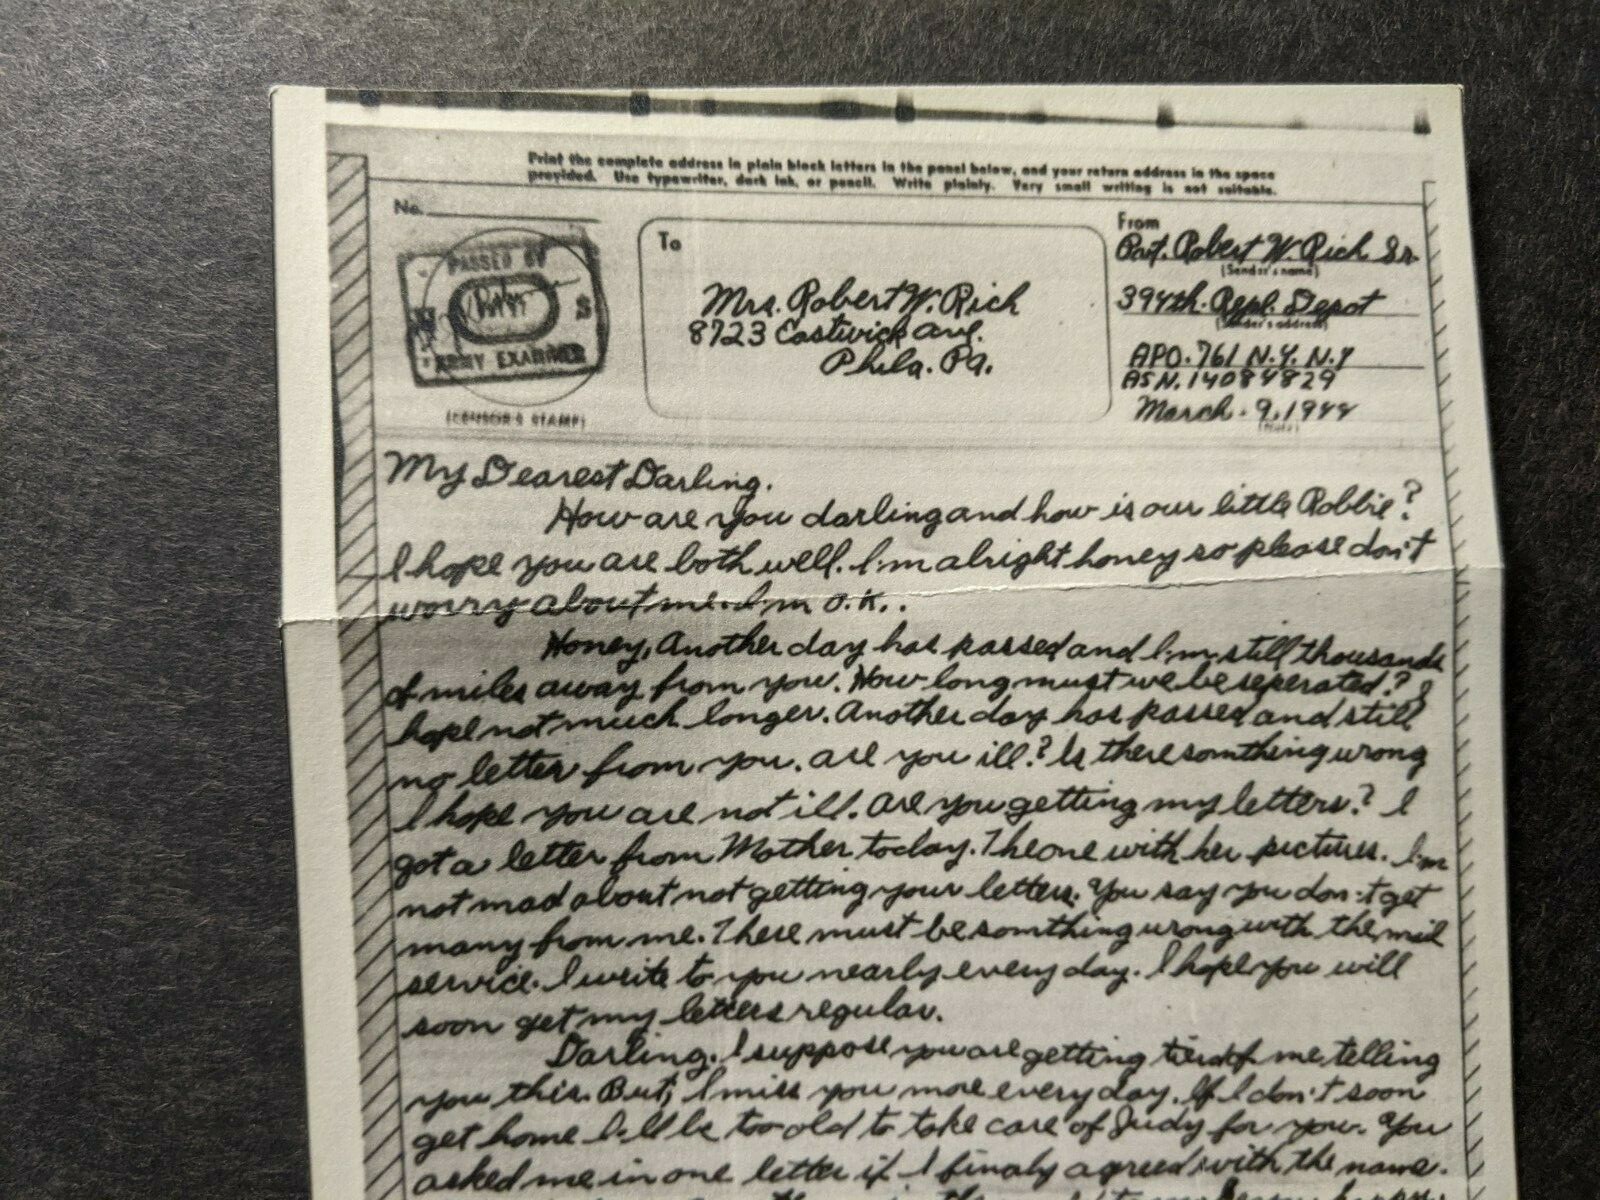 Print the complete address in plain block letters in the panel below, and your return address in the space
provided. Use typewriter, dark ink, or pencil. Write plainly. Very small writing is not suitable.
No.
PASSED BY
U S
ARMY EXAMINER
(CENSOR'S STAMP)
To
Mrs. Robert W. Rich
8723 Eastwick Ave.
Phila. Pa.
From
Pvt. Robert W Rich Sr
(Sender's name)
394th. Repl. Depot
(Sender's address)
APO. 761 N.Y. N.Y
ASN. 14084829
March. 9, 1944
(Date)
My Dearest Darling.
How are you darling and how is our little Robbie?
I hope you are both well. I'm alright honey so please don't
worry about me. I'm O.K..
Honey, Another day has passed and I'm still thousands
of miles away from you. How long must we be seperated? I
hope not much longer. Another day has passed and still
no letter from you. Are you ill? Is there somthing wrong
I hope you are not ill. Are you getting my letters? I
got a letter from Mother today. The one with her pictures. I'm
not mad about not getting your letters. You say you don't get
many from me. There must be somthing wrong with the mail
service. I write to you nearly every day. I hope you will
soon get my letters regular.
Darling. I suppose you are getting tired of me telling
you this. But, I miss you more every day. If I don't soon
get home I'll be too old to take care of Judy for you. You
asked me in one letter if I finaly agreed with the name.